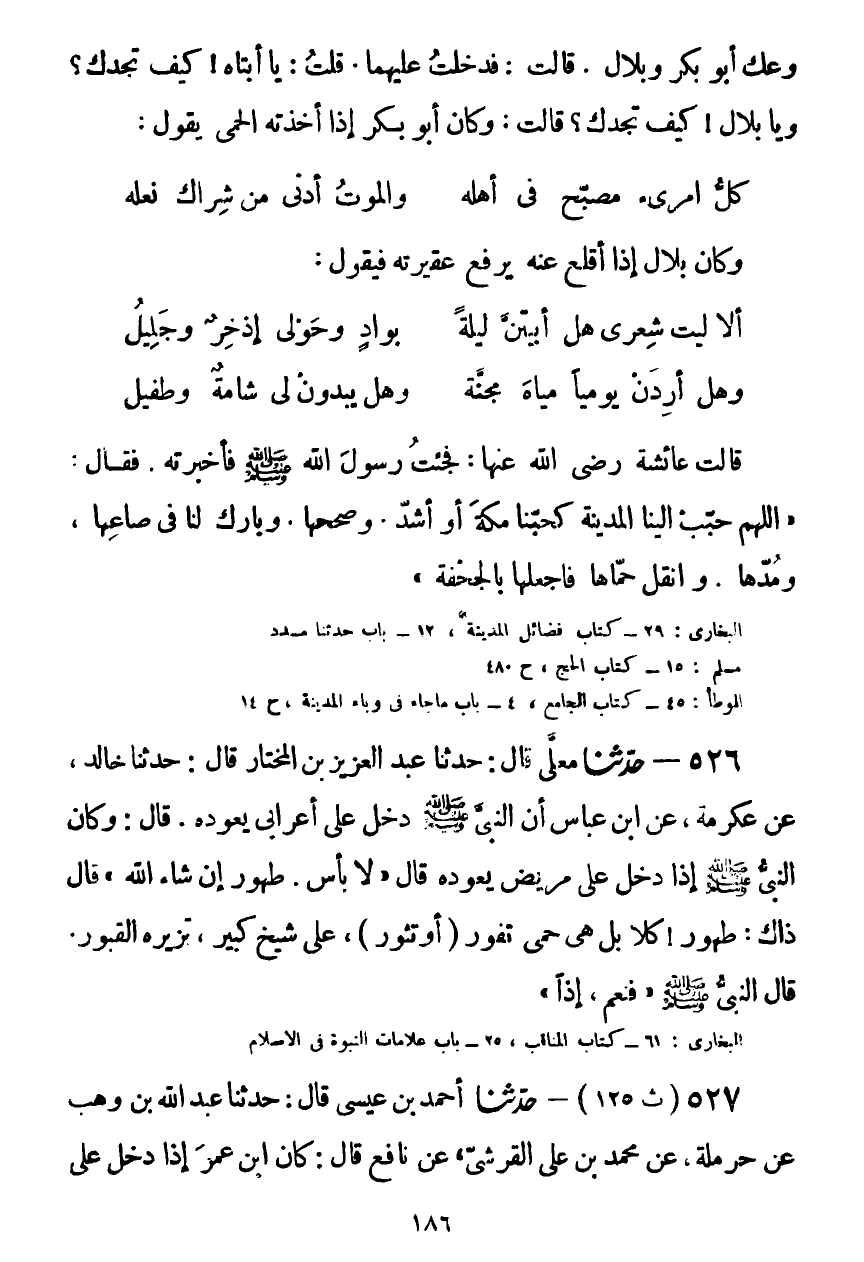 وعك أبو بكر وبلال . قالت : فدخلتُ عليهما . قلتُ : يا أبتاه ! كيف تجدك ؟
ويا بلال ! كيف تجدك ؟ قالت : وكان أبو بكر إذا أخذته الحمى يقول :
كلُّ امرىء مصبّح فى أهله والموتُ أدنى من شِراك نعله
وكان بلال إذا أقلع عنه يرفع عقيرته فيقول :
ألا ليت شِعرى هل أبيتنَّ ليلةً بوادٍ وحَوْلى إذخِرٌ وجَلِيلُ
وهل أرِدَنْ يومياً مياهَ مجِنَّة وهل يبدونْ لى شامةٌ وطفيل
قالت عائشة رضى الله عنها : فجئتُ رسولَ الله ﷺ فأخبرته . فقال :
« اللهم حبّبْ الينا المدينة كحبّنا مكةَ أو أشدّ . وصححها . وبارك لنا فى صاعِها ،
ومُدّها . و انقل حمّاها فاجعلها بالجحْفة »
البخارى : ٢٩ ــ كتاب فضائل المدينة ، ١٢ ــ باب حدثنا مسدد
مسلم : ١٥ ــ كتاب الحج ، ح ٤٨٠
الموطأ : ٤٥ ــ كتاب الجامع ، ٤ ــ باب ماجاء فى وباء المدينة ، ح ١٤
٥٢٦ — حدّثنا معلَّى قال : حدثنا عبد العزيز بن المختار قال : حدثنا خالد ،
عن عكرمة ، عن ابن عباس أن النبىَّ ﷺ دخل على أعرابى يعوده . قال : وكان
النبىُّ ﷺ إذا دخل على مريض يعوده قال « لا بأس . طهور إن شاء الله » قال
ذاك : طهور ! كلا بل هى حمى تفور ( أو تثور ) ، على شيخ كبير ، تزيره القبور .
قال النبىُّ ﷺ « فنعم ، إذاً »
البخارى : ٦١ ــ كتاب المناقب ، ٢٥ ــ باب علامات النبوة فى الاسلام
٥٢٧ ( ث ١٢٥ ) — حدّثنا أحمد بن عيسى قال : حدثنا عبد الله بن وهب
عن حرملة ، عن محمد بن على القرشىّ ، عن نافع قال : كان ابن عمرَ إذا دخل على
١٨٦